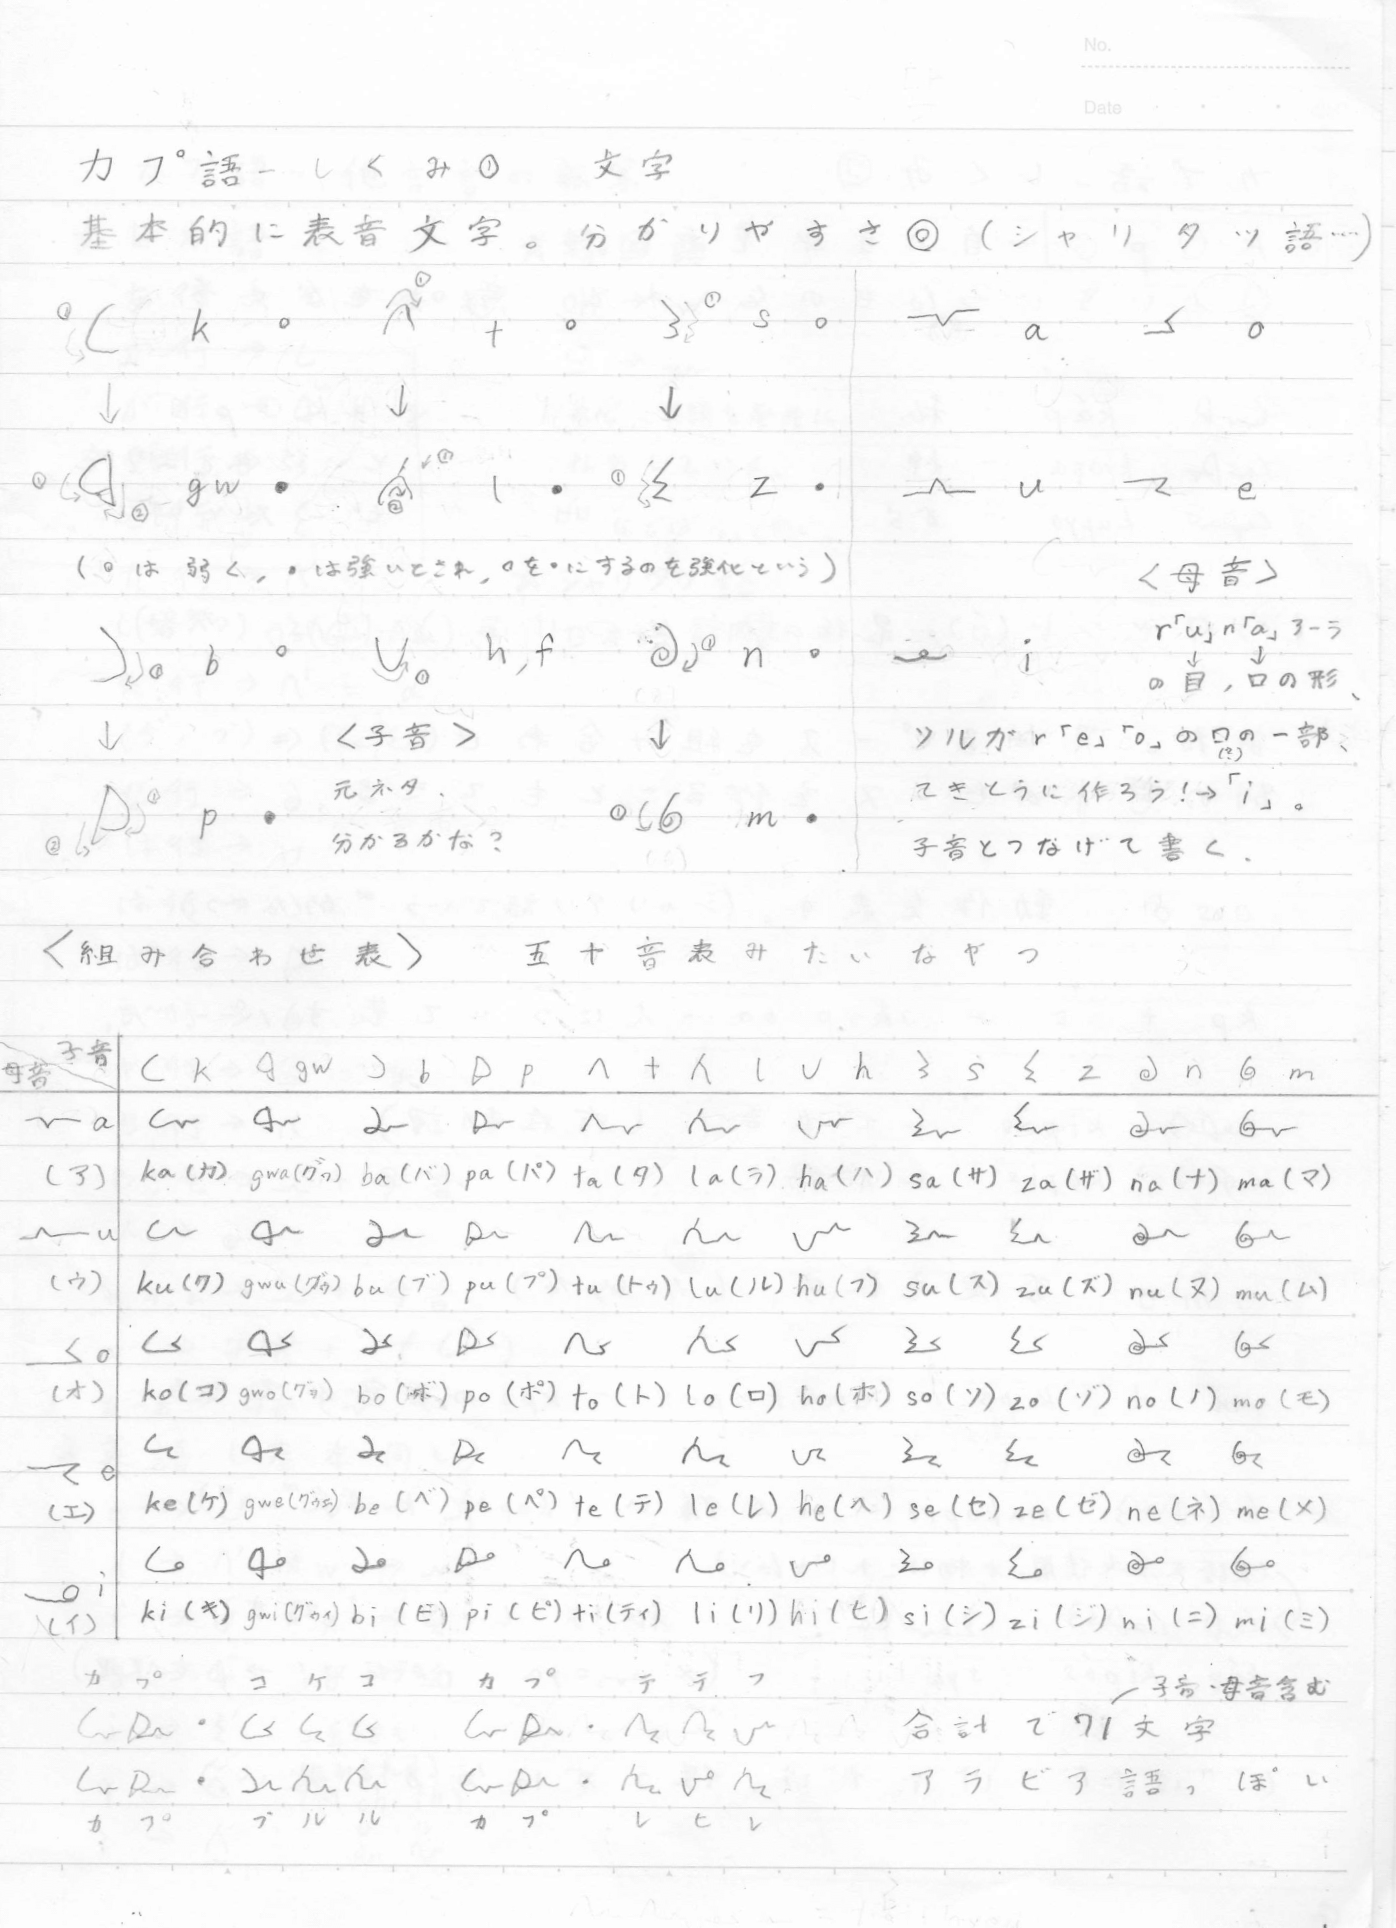 No.
Date
カプ語-しくみ① 文字
基本的に表音文字。分かりやすさ◎(シャリタツ語……)
① k ○ ① t ○ ① s ○ a o
↓ ↓ ↓
① ② gw ● ① ② l ● ① z ● u e
(○は弱く,●は強いとされ,○を●にするのを強化という)
<母音>
① b ○ ① h,f ① n ○ i
r「u」n「a」ヨーラ
↓ ↓
の目,口の形、
↓ <子音> ↓
ツルがr「e」「o」の口の一部、
(?)
① ② p ● 元ネタ、 ① m ●
分かるかな?
てきとうに作ろう!→「i」。
子音とつなげて書く、
<組み合わせ表> 五十音表みたいなやつ
子音 母音 k gw b p t l h s z n m
a
(ア) ka(カ) gwa(グヮ) ba(バ) pa(パ) ta(タ) la(ラ) ha(ハ) sa(サ) za(ザ) na(ナ) ma(マ)
u
(ウ) ku(ク) gwu(グゥ) bu(ブ) pu(プ) tu(トゥ) lu(ル) hu(フ) su(ス) zu(ズ) nu(ヌ) mu(ム)
o
(オ) ko(コ) gwo(グォ) bo(ボ) po(ポ) to(ト) lo(ロ) ho(ホ) so(ソ) zo(ゾ) no(ノ) mo(モ)
e
(エ) ke(ケ) gwe(グウェ) be(ベ) pe(ペ) te(テ) le(レ) he(ヘ) se(セ) ze(ゼ) ne(ネ) me(メ)
i
(イ) ki(キ) gwi(グウィ) bi(ビ) pi(ピ) ti(ティ) li(リ) hi(ヒ) si(シ) zi(ジ) ni(ニ) mi(ミ)
カプ コケコ カプ テテフ
子音・母音含む
合計で71文字
アラビア語っぽい
カプ ブルル カプ レヒレ